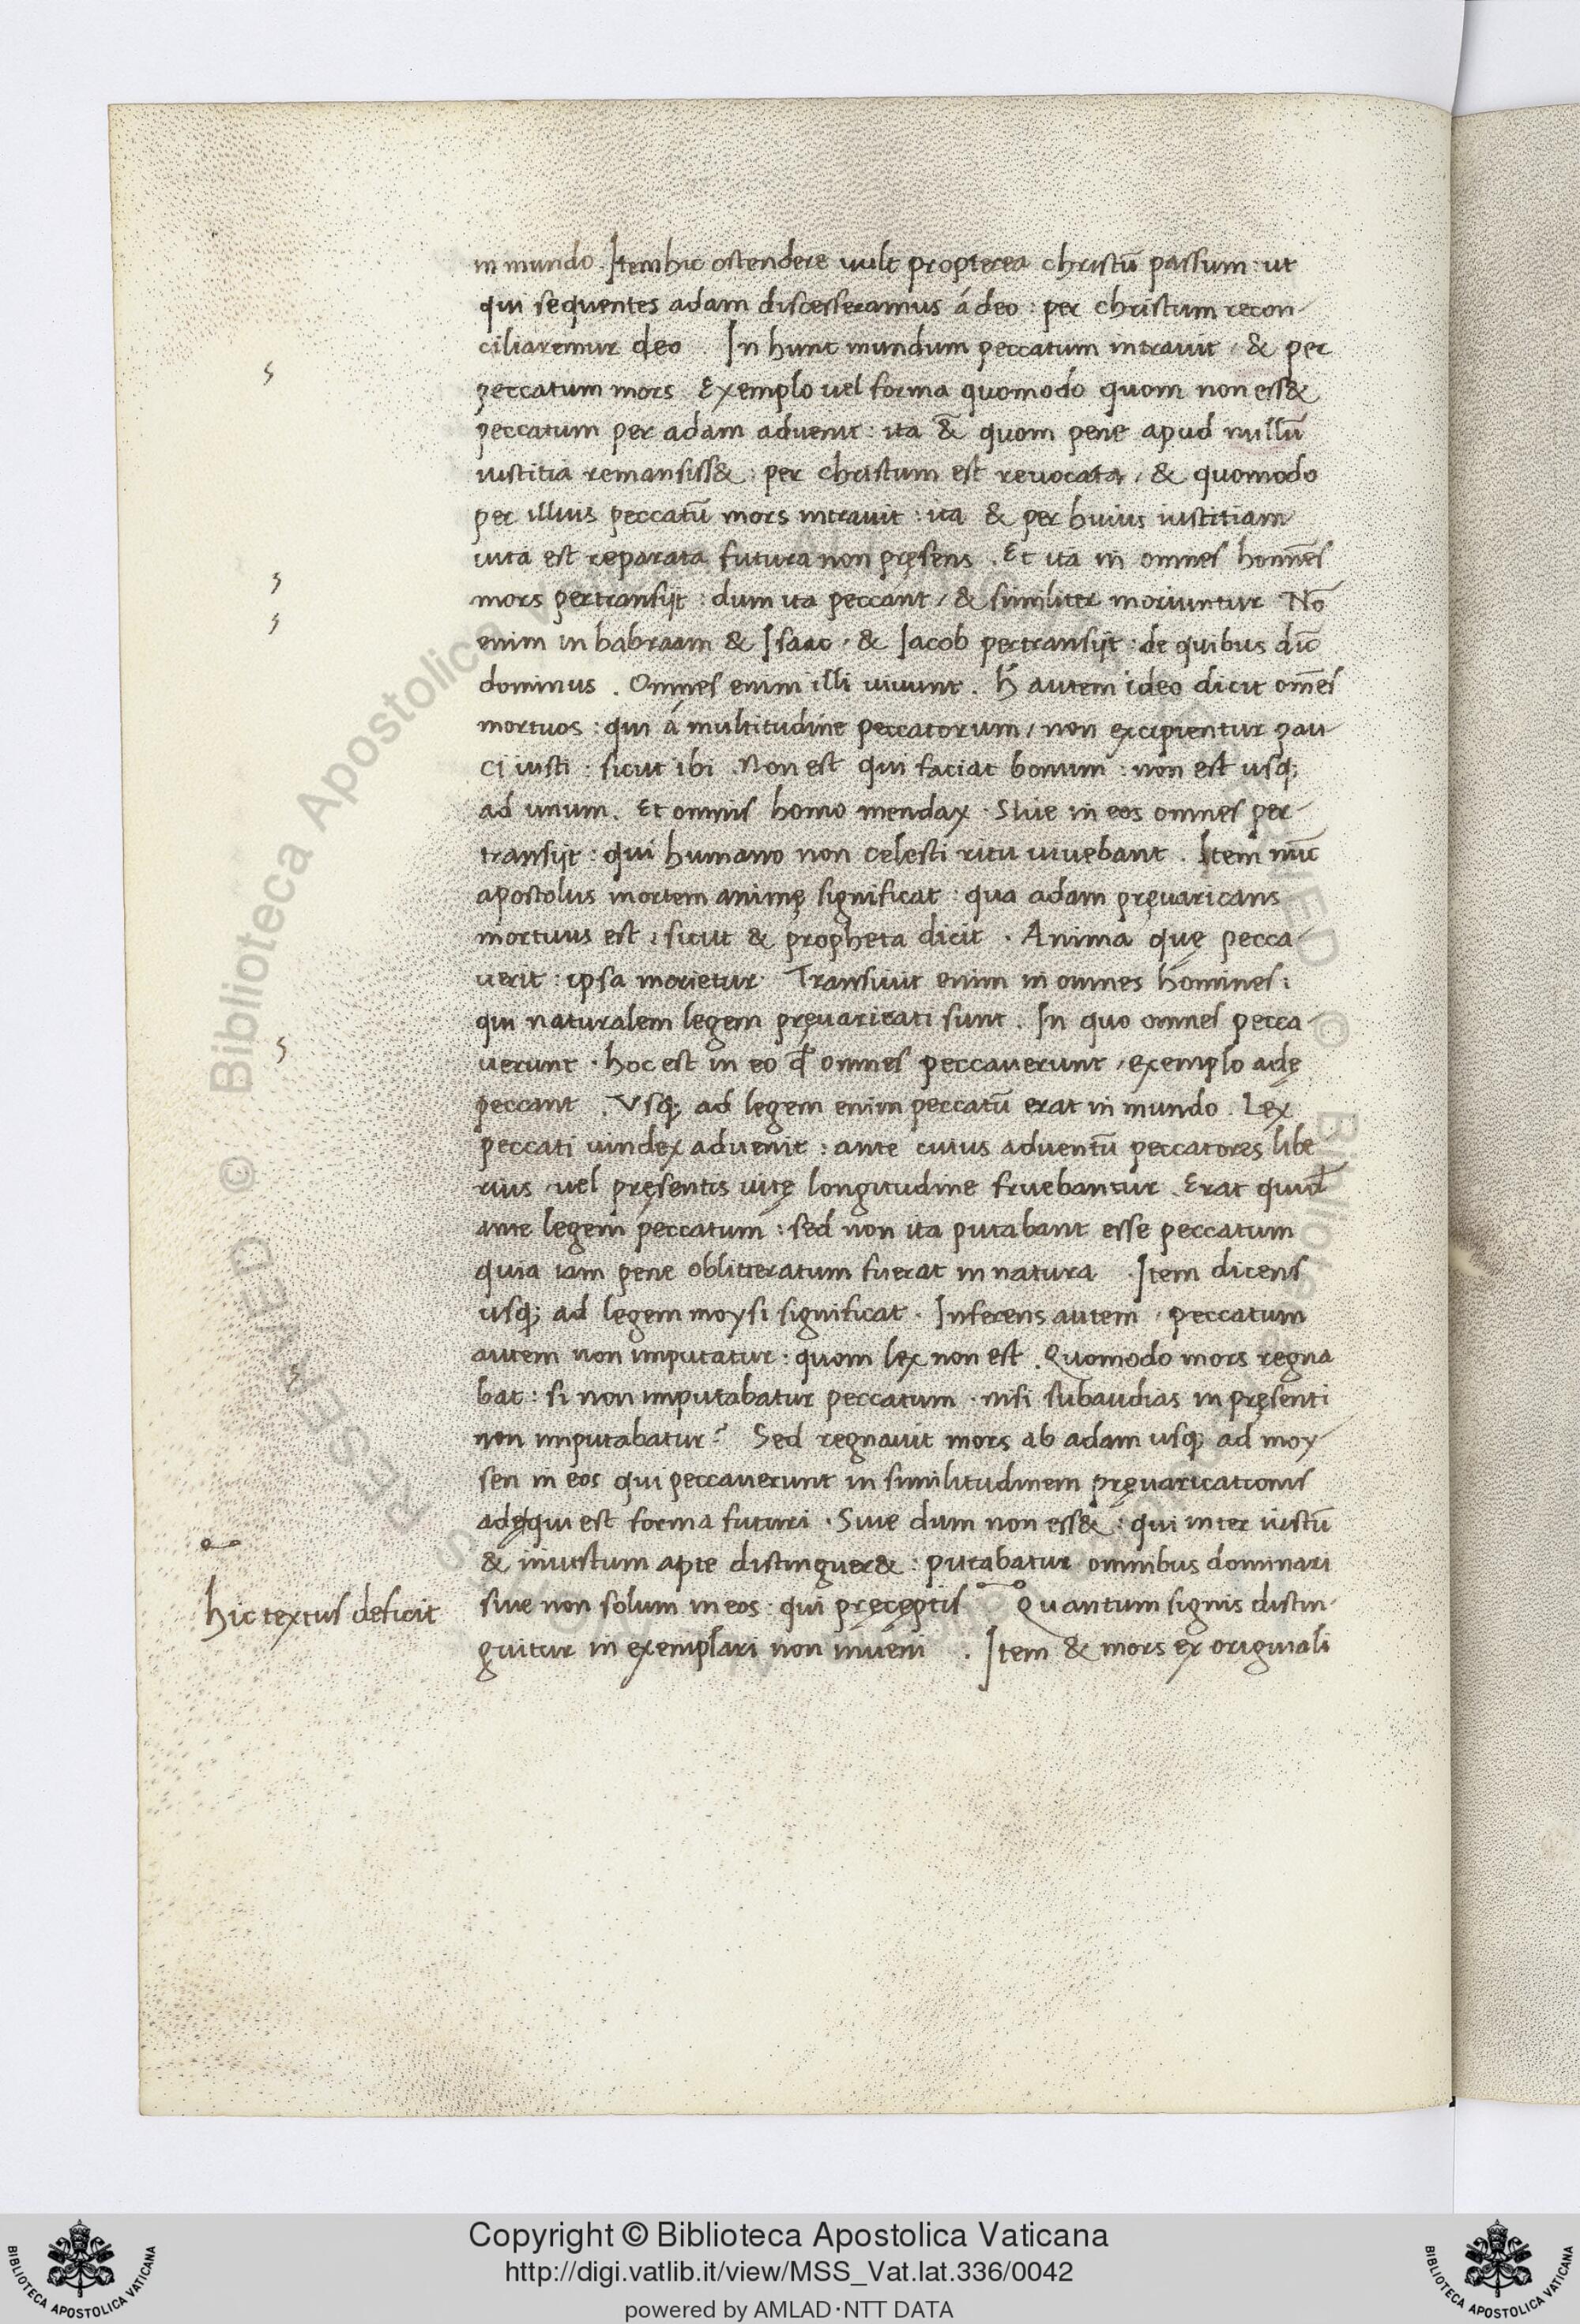 in mundo. Item hic ostendere uult propterea christū passum: ut
qui sequentes adam discesseramus á deo: per christum recon-
ciliaremur deo. In hunc mundum peccatum intrauit, & per
peccatum mors Exemplo uel forma quomodo quom non ess&
peccatum per adam aduenit: ita & quom pene apud nullū
iustitia remansiss&: per christum est reuocata, & quomodo
per illius peccatū mors intrauit: ita & per huius iustitiam
uita est reparata futura non pręsens. Et ita in omnes homīes
mors pertransijt: dum ita peccant, & similiter moriuntur Nō
enim in habraam & Isaac, & Iacob pertransijt: de quibus dīc
dominus. Omnes enim illi uiuunt. h̄ autem ideo dicit om̄es
mortuos: qui á multitudine peccatorum, non excipientur pau-
ci iusti: sicut ibi. Non est qui faciat bonum: non est usq;
ad unum. Et omnis homo mendax. Siue in eos omnes per-
transijt: qui humano non celesti ritu uiuebant. Item nūc
apostolus mortem animę significat: qua adam pręuaricans
mortuus est: sicut & propheta dicit. Anima quę pecca-
uerit: ipsa morietur. Transiuit enim in omnes homines:
qui naturalem legem pręuaricati sunt. In quo omnes pecca-
uerunt. hoc est in eo qđ omnes peccauerunt, exemplo adę
peccant. Vsq; ad legem enim peccatū erat in mundo. Lex
peccati uindex aduenit: ante cuius aduentū peccatores libe-
rius uel pręsentis uitę longitudine fruebantur. Erat quid̄
ante legem peccatum: sed non ita putabant esse peccatum
quia iam pene oblitteratum fuerat in natura. Item dicens
usq; ad legem moysi significat. Inferens autem, peccatum
autem non imputatur: quom lex non est. Quomodo mors regna
bat: si non imputabatur peccatum. nisi subaudias in pręsenti
non imputabatur? Sed regnauit mors ab adam usq; ad moy-
sen in eos qui peccauerunt in similitudinem pręuaricationis
adę qui est forma futuri. Siue dum non ess&: qui inter iustū
& iniustum apte distinguer&: putabatur omnibus dominari
hic textus deficit
siue non solum in eos: qui pręceptis Quantum signis distin-
guitur in exemplari non inueni. Item & mors ex originali
Copyright © Biblioteca Apostolica Vaticana
http://digi.vatlib.it/view/MSS_Vat.lat.336/0042
powered by AMLAD·NTT DATA
BIBLIOTECA APOSTOLICA VATICANA
BIBLIOTECA APOSTOLICA VATICANA